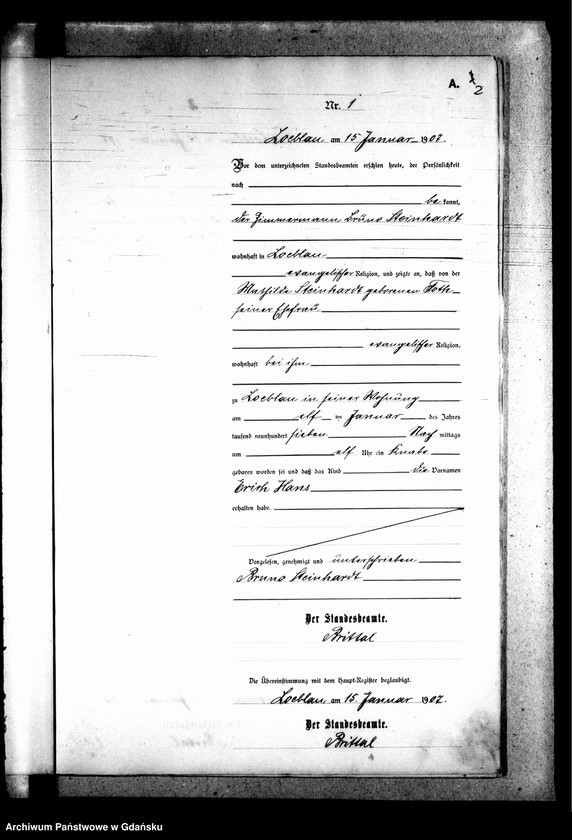 A. 1
2
Nr. 1
Loeblau am 15 Januar 1907.
Vor dem unterzeichneten Standesbeamten erschien heute, der Persönlichkeit
nach
be kannt,
der Zimmermann Bruno Steinhardt
wohnhaft in Loeblau
evangelischer Religion, und zeigte an, daß von der
Mathilde Steinhardt geborenen Toth
seiner Ehefrau
evangelischer Religion,
wohnhaft bei ihm
zu Loeblau in seiner Wohnung
am elf ten Januar des Jahres
tausend neunhundert sieben Nach mittags
um elf Uhr ein Knabe
geboren worden sei und daß das Kind die Vornamen
Erich Hans
erhalten habe.
Vorgelesen, genehmigt und unterschrieben
Bruno Steinhardt
Der Standesbeamte.
Brittal
Die Übereinstimmung mit dem Haupt-Register beglaubigt.
Loeblau am 15. Januar 1907.
Der Standesbeamte.
Brittal
Archiwum Państwowe w Gdańsku